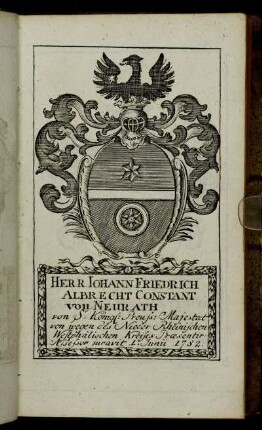 HERR IOHANN FRIEDRICH
ALBRECHT CONSTANT
von NEURATH
von Sr. Königl: Preuss: Majestat
von wegen des Nieder Rheinischen
Westphälischen Kreises Præsentir.
Assessor iuravit 1. Iunii 1782.